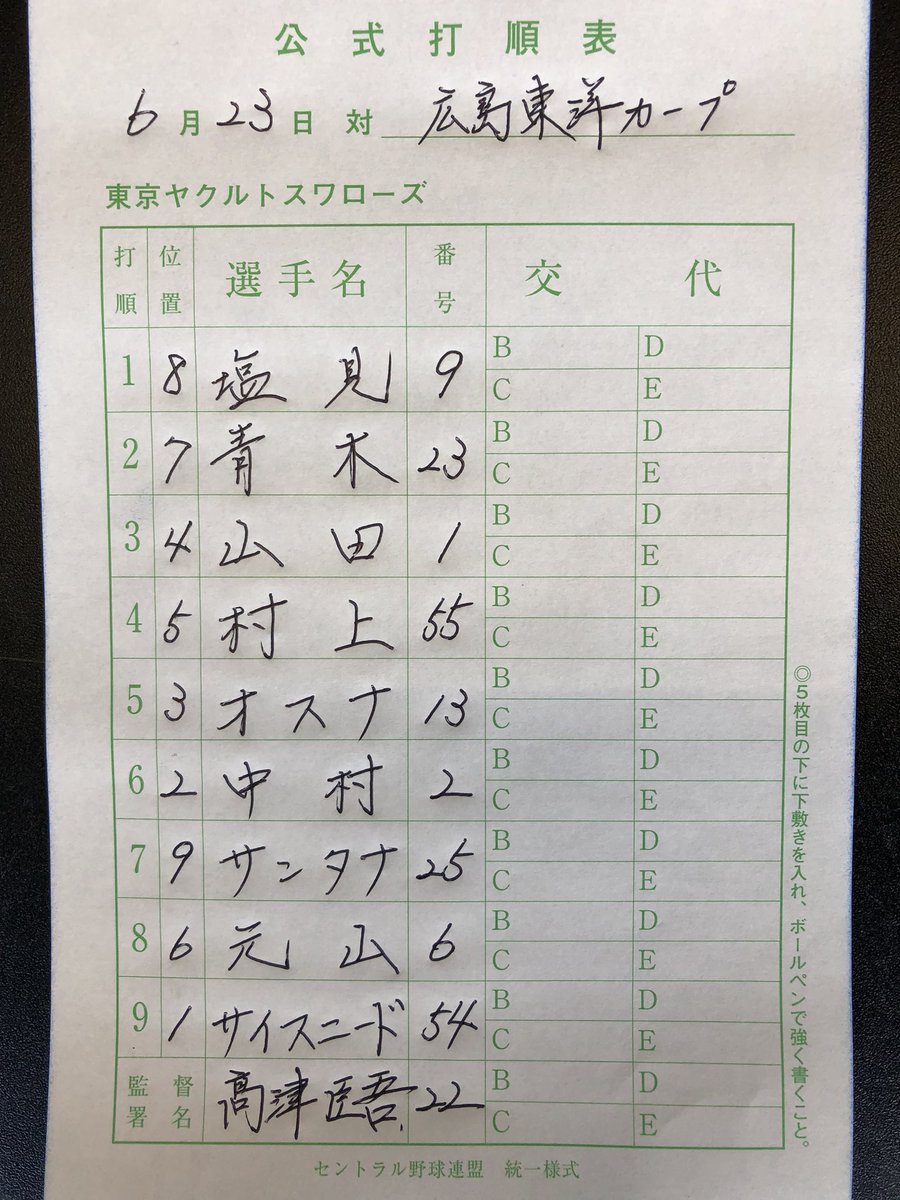 公式打順表
6月23日 対 広島東洋カープ
東京ヤクルトスワローズ
打順 位置 選手名 番号 交代
1 8 塩見 9 B D
C E
2 7 青木 23 B D
C E
3 4 山田 1 B D
C E
4 5 村上 55 B D
C E
5 3 オスナ 13 B D
C E
6 2 中村 2 B D
C E
7 9 サンタナ 25 B D
C E
8 6 元山 6 B D
C E
9 1 サイスニード 54 B D
C E
監督署名 高津臣吾 22 B D
C E
◎5枚目の下に下敷きを入れ、ボールペンで強く書くこと。
セントラル野球連盟 統一様式